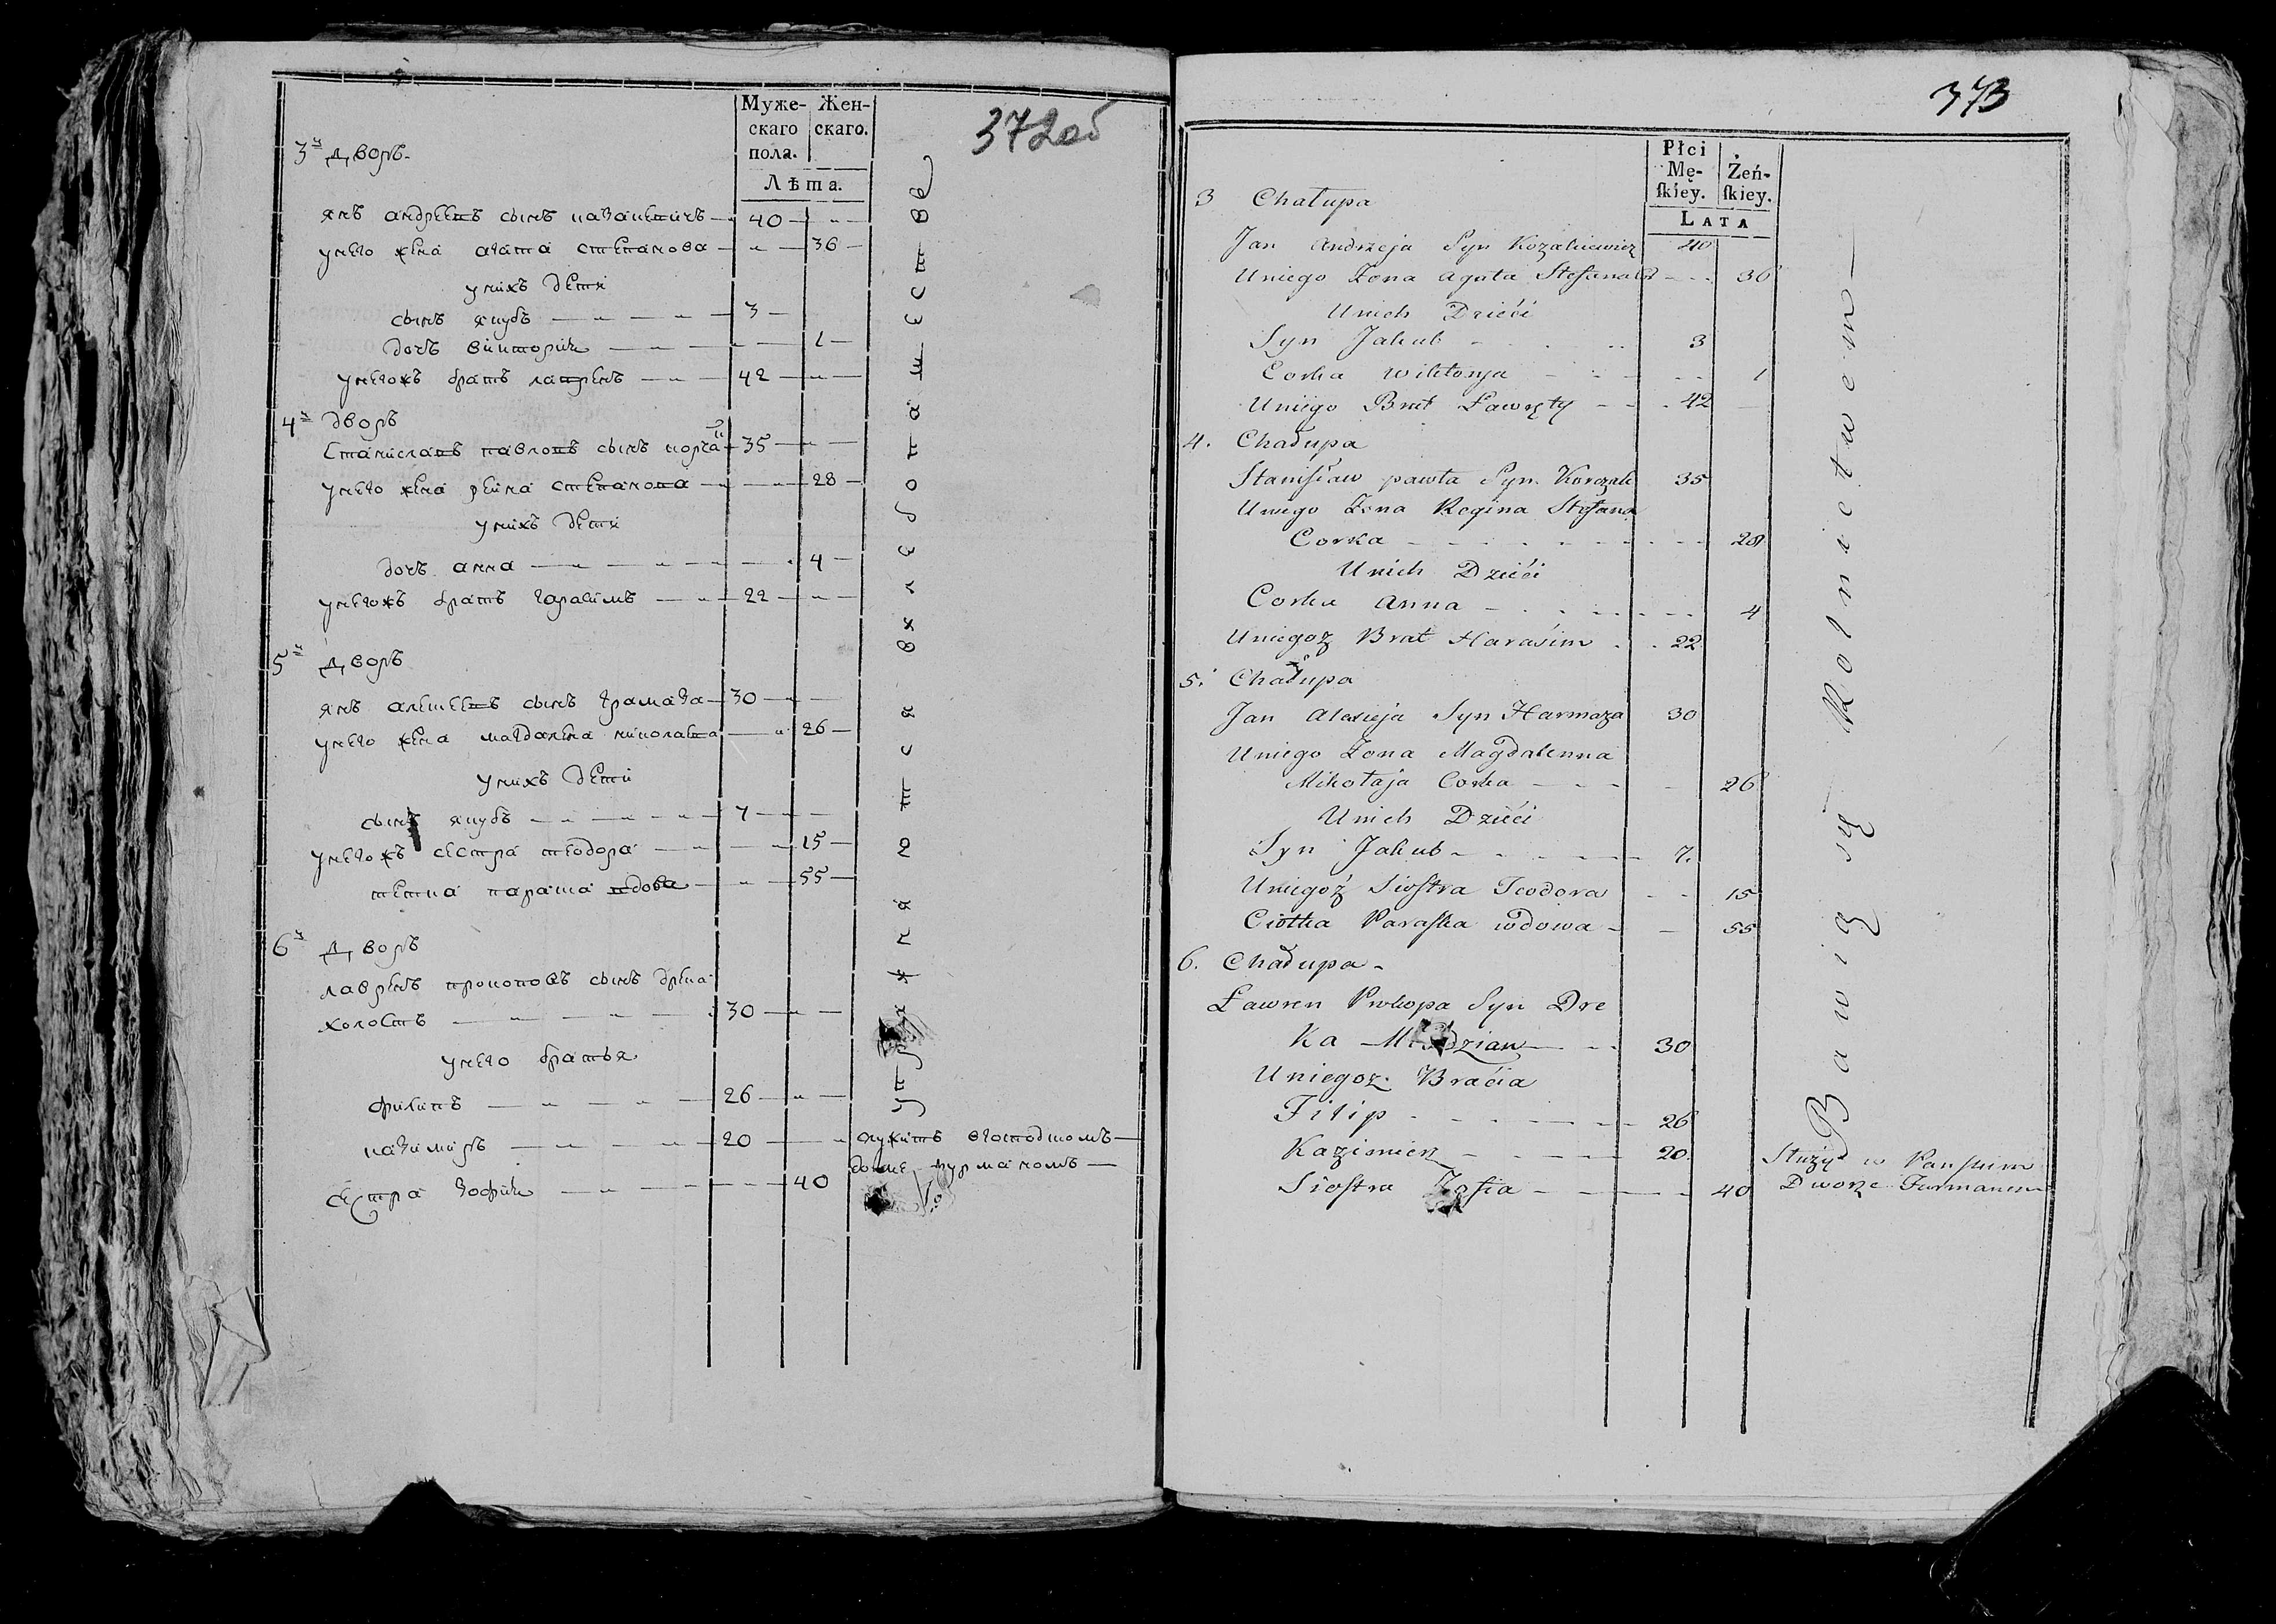 372об
Муже- Жен-
скаго скаго.
пола.
Лѣта.
3й дворъ
янъ андреевъ сынъ казакевичъ 40
унего жена агата степанова 36
унихъ дети
сынъ якубъ 3
дочъ викторія 1
унегожъ братъ лавренъ 42
4й дворъ
Станиславъ павловъ сынъ корчакъ 35
унего жена регина степанова 28
унихъ дети
дочъ анна 4
унегожъ братъ гарасимъ 22
5й дворъ
янъ алексеевъ сынъ грамаза 30
унего жена магдалена николаева 26
унихъ дети
сынъ якубъ 7
унегожъ сестра теодора 15
тетка параша вдова 55
6й дворъ
лавренъ прокоповъ сынъ дрека
холостъ 30
унего братья
филипъ 26
казимиръ 20 служитъ
фурманомъ
сестра зофія 40
упражняятся вхлебопашестве
373
Płci Żeń-
Mę- skiey.
skiey.
LATA
3 Chałupa
Jan Andrzeja Syn Kozakiewicz 40
Uniego Żona Agata Stefana 36
Unich Dzieći
Syn Jakub 3
Corka Wiktorya 1
Uniego Brat Ławręty 42
4. Chałupa
Stanisław pawła Syn Korczak 35
Uniego Żona Regina Stefana
Corka 28
Unich Dzieći
Corka Anna 4
Uniegoż Brat Harasim 22
5. Chałupa
Jan Alexieja Syn Harmaza 30
Uniego Żona Magdalenna
Mikołaja Corka 26
Unich Dzieći
Syn Jakub 7.
Uniegoż Siostra Teodora 15
Ciotka Paraska wdowa 55
6. Chałupa
Ławren Prokopa Syn Dre
Ka 30
Uniegoż Braćia
Filip 26
Kazimierz 20 Służy w Panskim
Dworze Furmanem
Siostra Zofia 40
Bawią się Rolnictwem